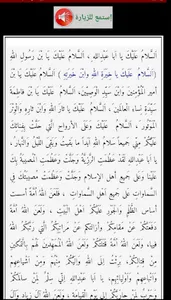 استمع للزيارة
اَلسَّلامُ عَلَيْكَ يا اَبا عَبْدِاللهِ ، اَلسَّلامُ عَلَيْكَ يَا بْنَ رَسُولِ اللهِ
(السَّلامُ عَلَيْكَ يا خِيَرَةَ اللهِ وابْنَ خِيَرَتِهِ ) اَلسَّلامُ عَلَيْكَ يَا بْنَ
اَميرِ الْمُؤْمِنينَ وَابْنَ سَيِّدِ الْوَصِيّينَ ، اَلسَّلامُ عَلَيْكَ يَا بْنَ فاطِمَةَ
سَيِّدَةِ نِساءِ الْعالَمينَ ، اَلسَّلامُ عَلَيْكَ يا ثارَ اللهِ وَابْنَ ثارِهِ وَالْوِتْرَ
الْمَوْتُورَ ، اَلسَّلامُ عَلَيْكَ وَعَلَى الاَْرواحِ الَّتي حَلَّتْ بِفِنائِكَ
عَلَيْكُمْ مِنّي جَميعاً سَلامُ اللهِ اَبَداً ما بَقيتُ وَبَقِيَ اللَّيْلُ وَالنَّهارُ ،
يا اَبا عَبْدِاللهِ لَقَدْ عَظُمَتِ الرَّزِيَّةُ وَجَلَّتْ وَعَظُمَتِ الْمُصيبَةُ بِكَ
عَلَيْنا وَعَلى جَميعِ اَهْلِ الاِْسْلامِ وَجَلَّتْ وَعَظُمَتْ مُصيبَتُكَ فِي
السَّماواتِ عَلى جَميعِ اَهْلِ السَّماواتِ ، فَلَعَنَ اللهُ اُمَّةً اَسَّسَتْ
اَساسَ الظُّلْمِ وَالْجَوْرِ عَلَيْكُمْ اَهْلَ الْبَيْتِ ، وَلَعَنَ اللهُ اُمَّةً
دَفَعَتْكُمْ عَنْ مَقامِكُمْ وَاَزالَتْكُمْ عَنْ مَراتِبِكُمُ الَّتي رَتَّبَكُمُ اللهُ
فيها ، وَلَعَنَ اللهُ اُمَّةً قَتَلَتْكُمْ وَلَعَنَ اللهُ الْمُمَهِّدينَ لَهُمْ بِالتَّمْكينِ
مِنْ قِتالِكُمْ ، بَرِئْتُ اِلَى اللهِ وَاِلَيْكُمْ مِنْهُمْ وَمِنْ اَشْياعِهِمْ
وَاَتْباعِهِمْ وَاَوْلِيائِهِمْ ، يا اَبا عَبْدِاللهِ اِنّي سِلْمٌ لِمَنْ سالَمَكُمْ